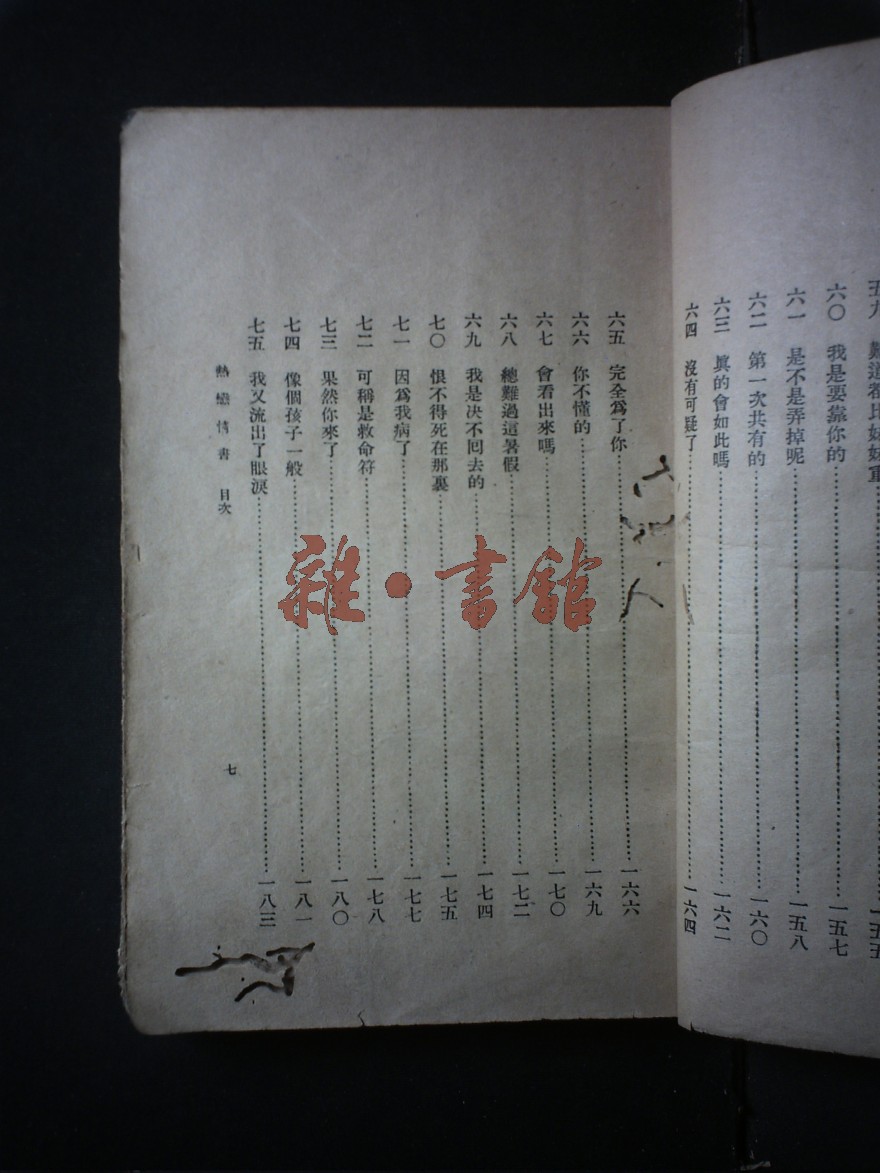 五九 難道都比妹妹重 一五五
六〇 我是要靠你的 一五七
六一 是不是弄掉呢 一五八
六二 第一次共有的 一六〇
六三 眞的會如此嗎 一六二
六四 沒有可疑了 一六四
六五 完全爲了你 一六六
六六 你不懂的 一六九
六七 會看出來嗎 一七〇
六八 總難過這暑假 一七二
六九 我是決不回去的 一七四
七〇 恨不得死在那裏 一七五
七一 因爲我病了 一七七
七二 可稱是救命符 一七八
七三 果然你來了 一八〇
七四 像個孩子一般 一八一
七五 我又流出了眼淚 一八三
熱戀情書 目次
七
雜·書館